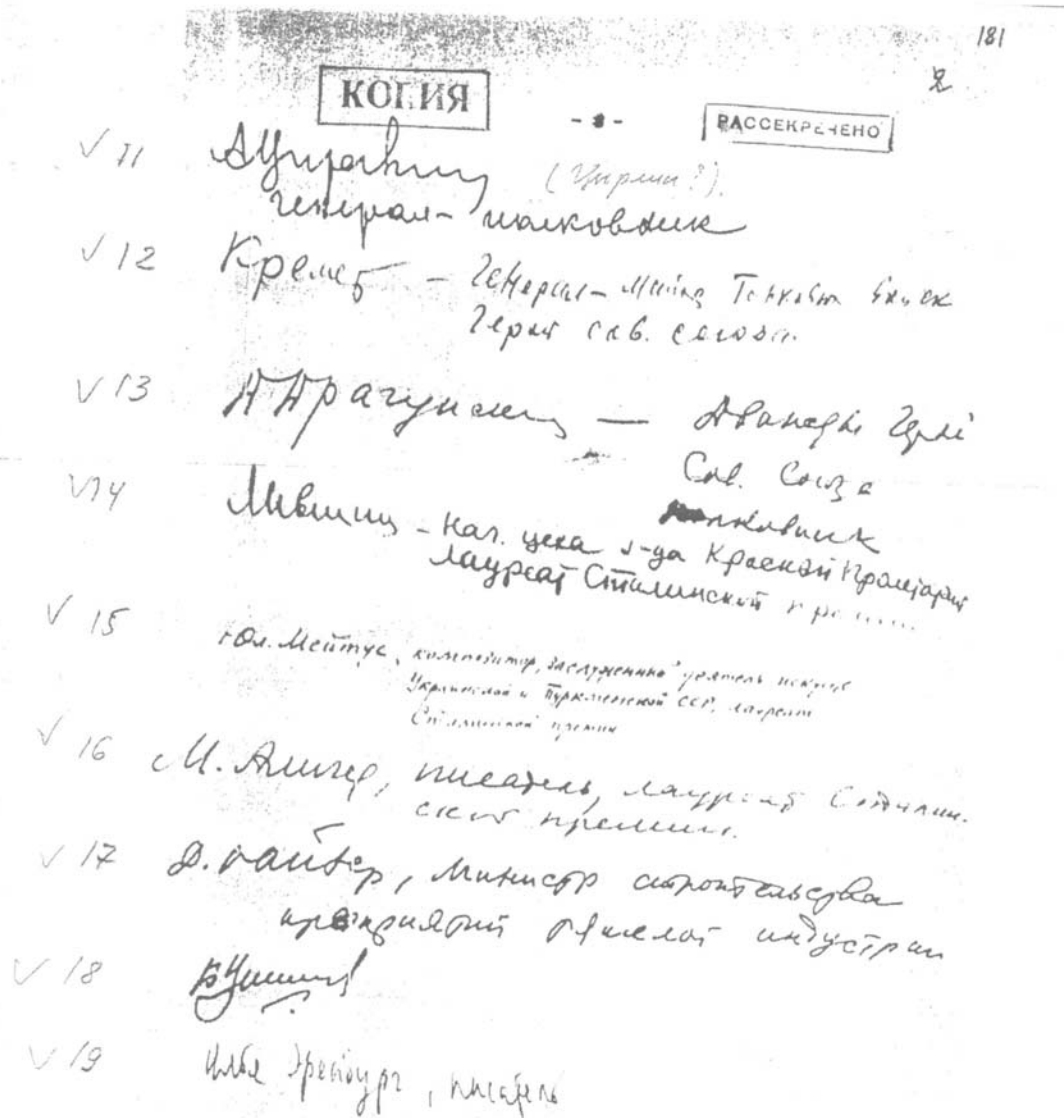 181
2
КОПИЯ
- 8 -
РАССЕКРЕЧЕНО
√ 11 АЦирлин (Цирлин?).
генерал-полковник
√ 12 Кремер – Генерал-Майор Танковых Войск
Герой сов. союза.
√ 13 Драгунский — Дважды Герой
Сов. Союза
полковник
√ 14 Лившиц – нач. цеха з-да Красный Пролетарий
лауреат Сталинской премии
√ 15 Юл. Мейтус, композитор, заслуженный деятель искусств
Украинской и Туркменской ССР, лауреат
Сталинской премии
√ 16 М. Алигер, писатель, лауреат Сталин-
ской премии.
√ 17 Д. Райзер, Министр строительства
предприятий тяжелой индустрии
√ 18
√ 19 Илья Эренбург, писатель